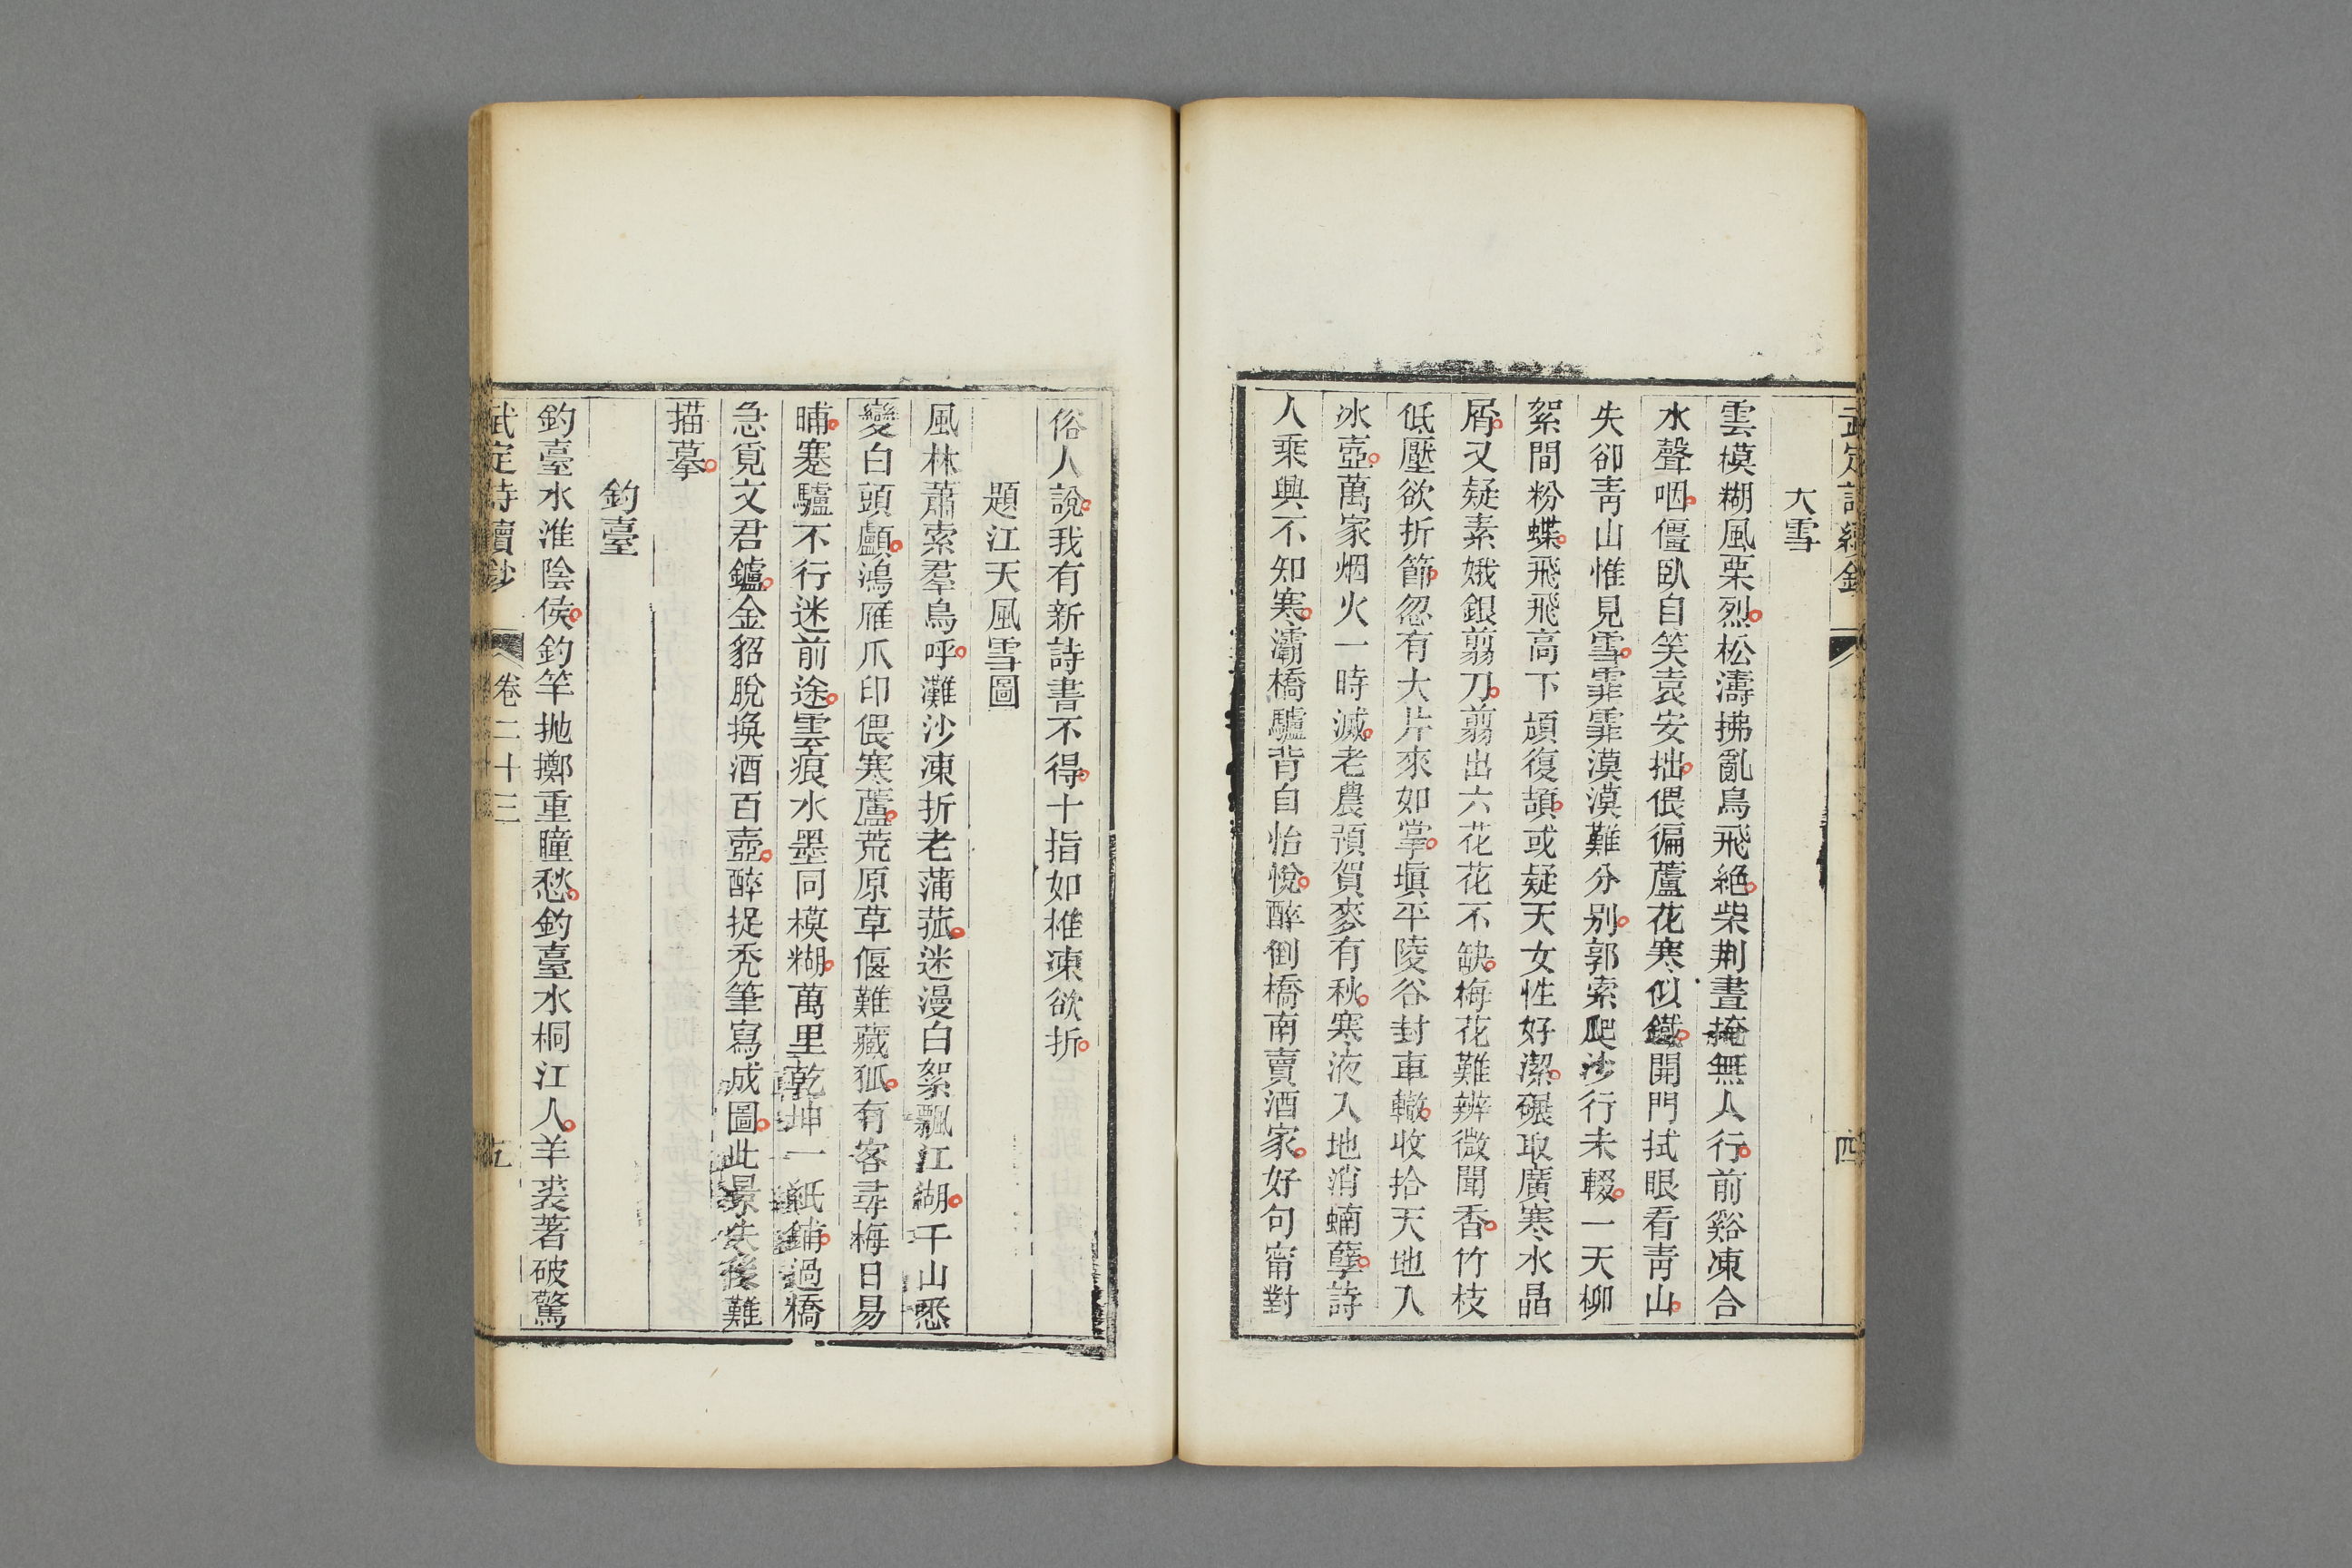 大雪
雲模糊風栗烈松濤拂亂鳥飛絕柴荆晝掩無人行前谿凍合
水聲咽僵臥自笑袁安拙偎徧蘆花寒似鐵開門拭眼看靑山
失卻靑山惟見雪霏霏漠漠難分别郭索爬沙行未輟一天柳
絮間粉蝶飛飛高下頏復頡或疑天女性好潔碾取廣寒水晶
屑又疑素娥銀翦刀翦出六花花不缺梅花難辨微聞香竹枝
低壓欲折節忽有大片來如掌塡平陵谷封車轍收拾天地入
冰壺萬家烟火一時滅老農預賀麥有秋寒液入地消蝻孽詩
人乘興不知寒灞橋驢背自怡悅醉倒橋南賣酒家好句甯對
俗人說我有新詩書不得十指如椎凍欲折
題江天風雪圖
風林蕭索羣鳥呼灘沙凍折老蒲菰迷漫白絮飄江湖千山悉
變白頭顱鴻雁爪印偎寒蘆荒原草偃難藏狐有客尋梅日易
晡蹇驢不行迷前途雲痕水墨同模糊萬里乾坤一紙鋪過橋
急覓文君鑪金貂脫換酒百壺醉捉禿筆寫成圖此景失後難
描摹
釣臺
釣臺水淮陰侯釣竿拋擲重瞳愁釣臺水桐江人羊裘著破驚
武定詩續鈔 卷二十三 五